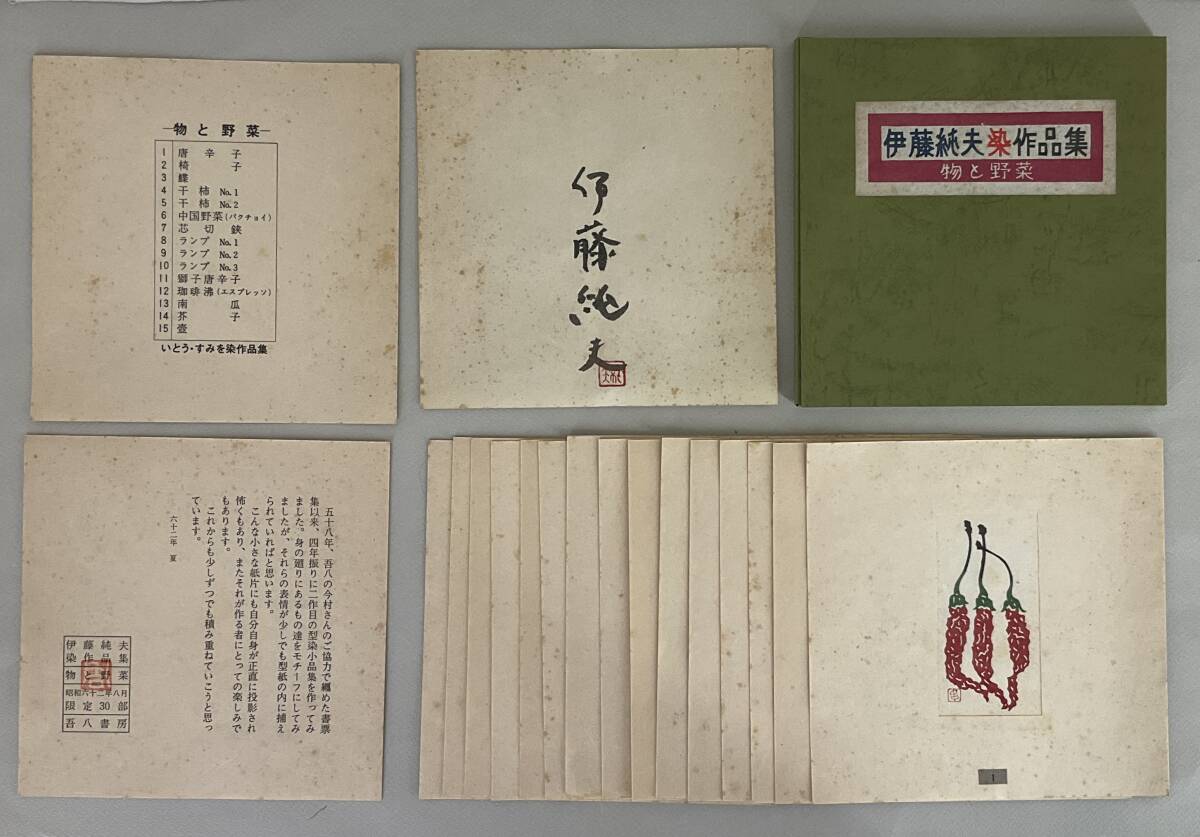 ─物と野菜─
1 唐辛子
2 椅子
3 鰈
4 干柿 No.1
5 干柿 No.2
6 中国野菜(パクチョイ)
7 芯切鋏
8 ランプ No.1
9 ランプ No.2
10 ランプ No.3
11 獅子唐辛子
12 珈琲沸(エスプレッソ)
13 南瓜
14 芥子
15 壺
いとう・すみを染作品集
伊藤純夫
伊藤純夫染作品集
物と野菜
五十八年、吾八の今村さんのご協力で纏めた書票
集以来、四年振りに二作目の型染小品集を作ってみ
ました。身の廻りにあるもの達をモチーフにしてみ
ましたが、それらの表情が少しでも型紙の内に捕え
られていればと思います。
こんな小さな紙片にも自分自身が正直に投影され
怖くもあり、またそれが作る者にとっての楽しみで
もあります。
これからも少しずつでも積み重ねていこうと思っ
ています。
六十二年 夏
伊藤純夫
染作品集
物と野菜
昭和六十二年八月
限定30部
吾八書房
1